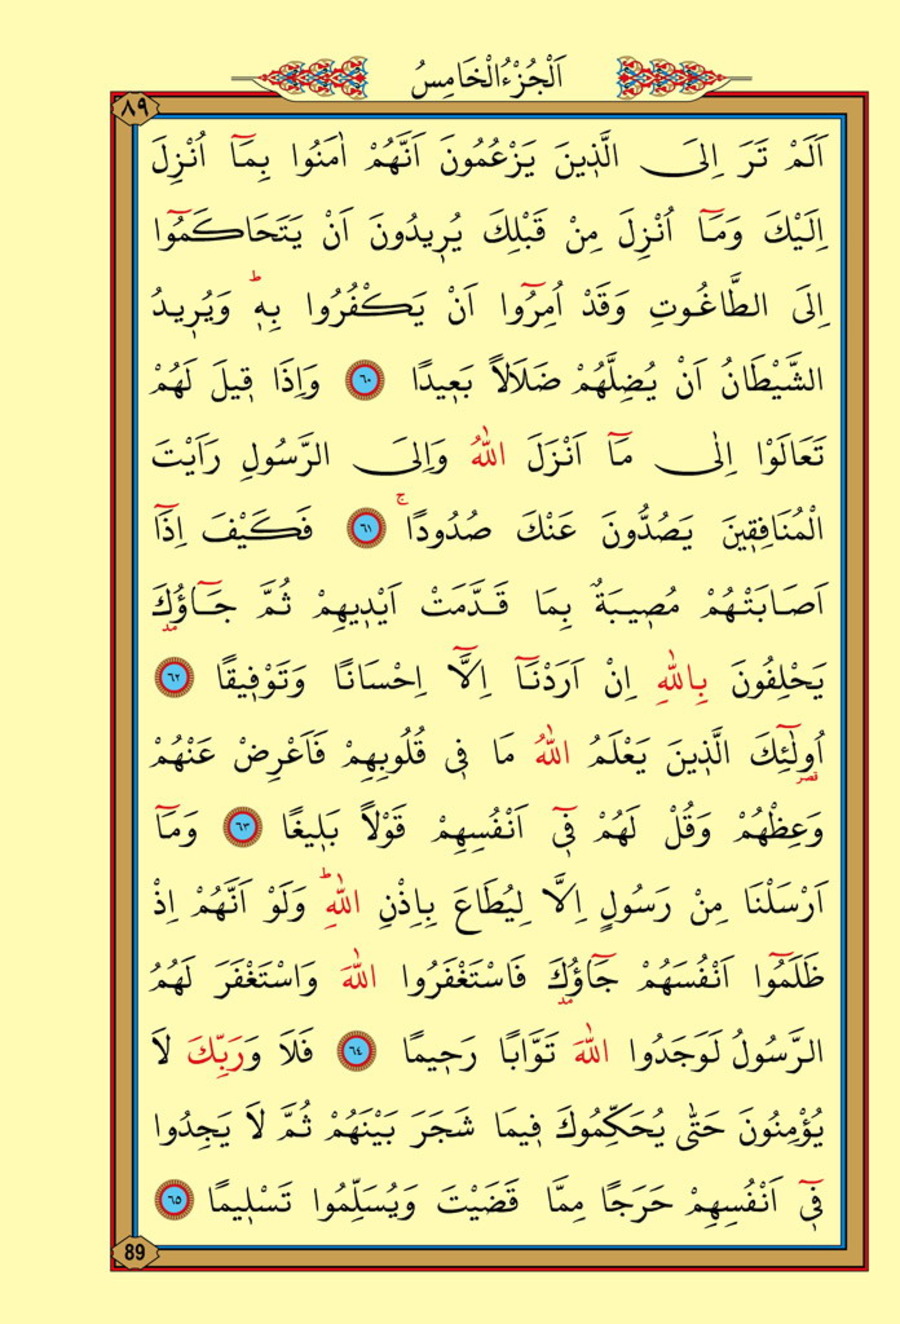 اَلْجُزْءُ الْخَامِسُ
٨٩
اَلَمْ تَرَ اِلَى الَّذ۪ينَ يَزْعُمُونَ اَنَّهُمْ اٰمَنُوا بِمَٓا اُنْزِلَ
اِلَيْكَ وَمَٓا اُنْزِلَ مِنْ قَبْلِكَ يُر۪يدُونَ اَنْ يَتَحَاكَمُٓوا
اِلَى الطَّاغُوتِ وَقَدْ اُمِرُٓوا اَنْ يَكْفُرُوا بِه۪ۜ وَيُر۪يدُ
الشَّيْطَانُ اَنْ يُضِلَّهُمْ ضَلَالاً بَع۪يدًا ﴿٦٠﴾ وَاِذَا ق۪يلَ لَهُمْ
تَعَالَوْا اِلٰى مَٓا اَنْزَلَ اللّٰهُ وَاِلَى الرَّسُولِ رَاَيْتَ
الْمُنَافِق۪ينَ يَصُدُّونَ عَنْكَ صُدُودًاۚ ﴿٦١﴾ فَكَيْفَ اِذَٓا
اَصَابَتْهُمْ مُص۪يبَةٌ بِمَا قَدَّمَتْ اَيْد۪يهِمْ ثُمَّ جَٓاؤُ۫كَ مد
يَحْلِفُونَ بِاللّٰهِ اِنْ اَرَدْنَٓا اِلَّٓا اِحْسَانًا وَتَوْف۪يقًا ﴿٦٢﴾
اُو۬لٰٓئِكَ الَّذ۪ينَ يَعْلَمُ اللّٰهُ مَا ف۪ي قُلُوبِهِمْ فَاَعْرِضْ عَنْهُمْ قصر
وَعِظْهُمْ وَقُلْ لَهُمْ ف۪ٓي اَنْفُسِهِمْ قَوْلاً بَل۪يغًا ﴿٦٣﴾ وَمَٓا
اَرْسَلْنَا مِنْ رَسُولٍ اِلَّا لِيُطَاعَ بِاِذْنِ اللّٰهِۜ وَلَوْ اَنَّهُمْ اِذْ
ظَلَمُٓوا اَنْفُسَهُمْ جَٓاؤُ۫كَ فَاسْتَغْفَرُوا اللّٰهَ وَاسْتَغْفَرَ لَهُمُ مد
الرَّسُولُ لَوَجَدُوا اللّٰهَ تَوَّابًا رَح۪يمًا ﴿٦٤﴾ فَلَا وَرَبِّكَ لَا
يُؤْمِنُونَ حَتّٰى يُحَكِّمُوكَ ف۪يمَا شَجَرَ بَيْنَهُمْ ثُمَّ لَا يَجِدُوا
ف۪ٓي اَنْفُسِهِمْ حَرَجًا مِمَّا قَضَيْتَ وَيُسَلِّمُوا تَسْل۪يمًا ﴿٦٥﴾
89